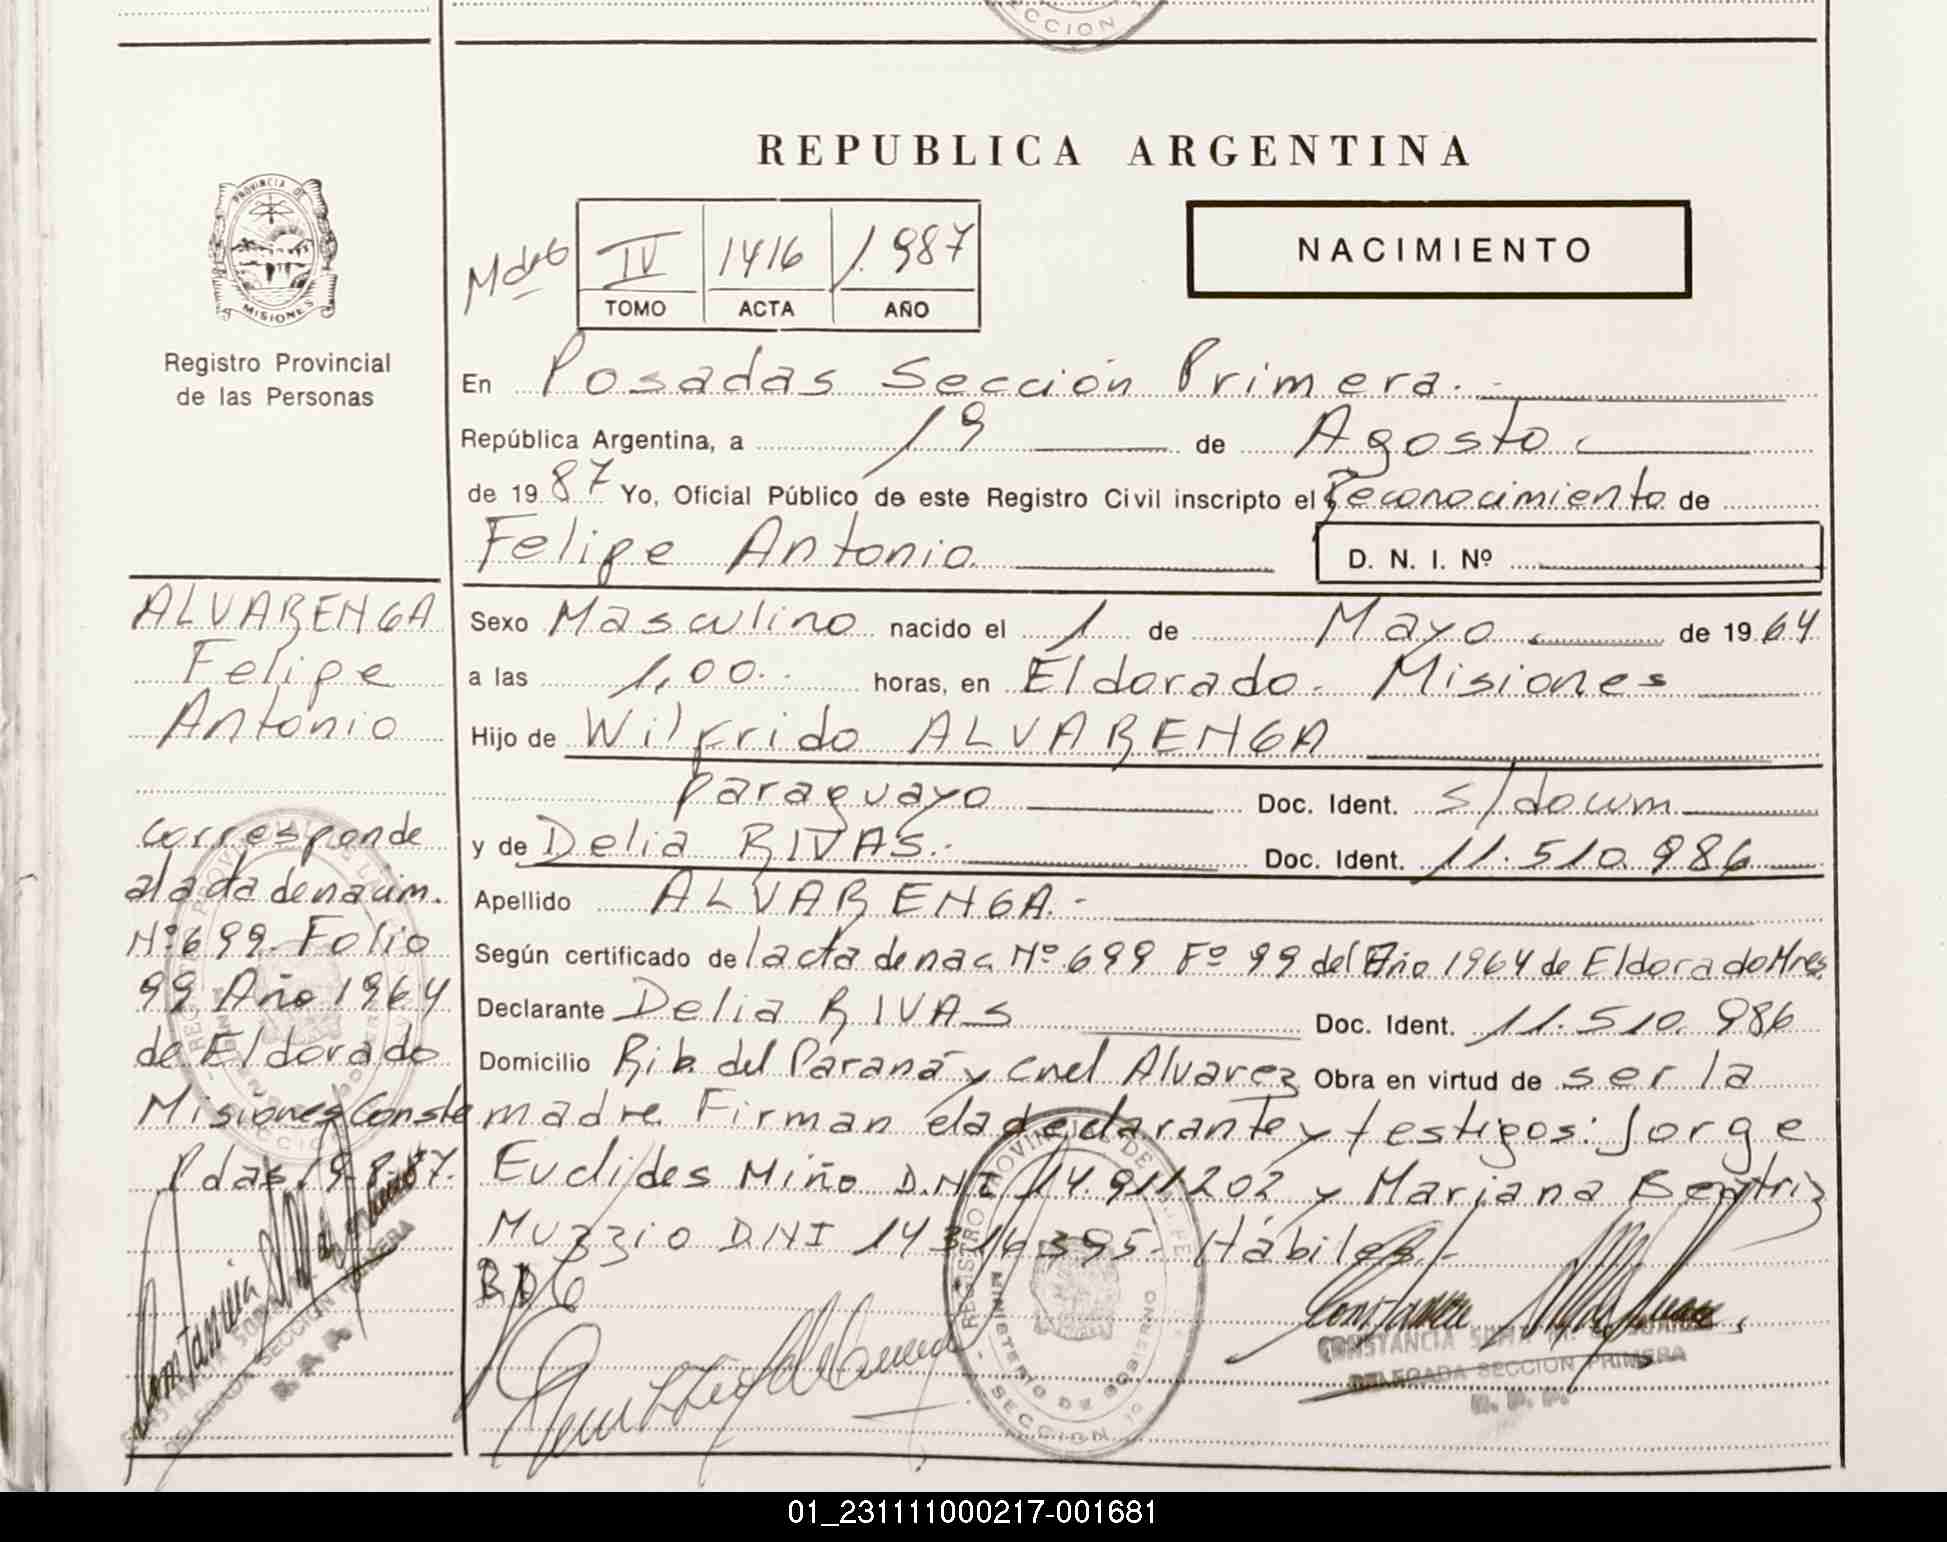 SECCION
REPUBLICA ARGENTINA
PROVINCIA DE
MISIONES
Registro Provincial
de las Personas
IV 1416 1.987
TOMO ACTA AÑO
NACIMIENTO
En Posadas Sección Primera.
República Argentina, a 19 de Agosto
de 1987 Yo, Oficial Público de este Registro Civil inscripto el Reconocimiento de
Felipe Antonio
D. N. I. Nº
Sexo Masculino nacido el 1 de Mayo de 1964
a las 1,00 horas, en Eldorado. Misiones
Hijo de Wilfrido ALVARENGA
Paraguayo Doc. Ident. s/docum
y de Delia RIVAS. Doc. Ident. 11.510.986
Apellido ALVARENGA.-
Según certificado de lacta de nac. Nº 699 Fº 99 del Año 1964 de Eldorado Mnes
Declarante Delia RIVAS Doc. Ident. 11.510.986
Domicilio Rib. del Paraná y Cnel Alvarez Obra en virtud de ser la
madre. Firman la declarante y testigos: Jorge
Euclides Miño D.NI 14.911202 y Mariana Beatriz
Muzzio D.NI 14316395- Hábiles.-
ALVARENGA
Felipe
Antonio
corresponde
al acta de nacim.
Nº 699. Folio
99 Año 1964
de Eldorado
Misiones Conste
Pdas, 19-8-87.
REGISTRO PROVINCIAL DE LAS PERSONAS
MINISTERIO DE GOBIERNO
- SECCION 1ª
CONSTANCIA
DELEGADA SECCION PRIMERA
R. P. P.
01_231111000217-001681